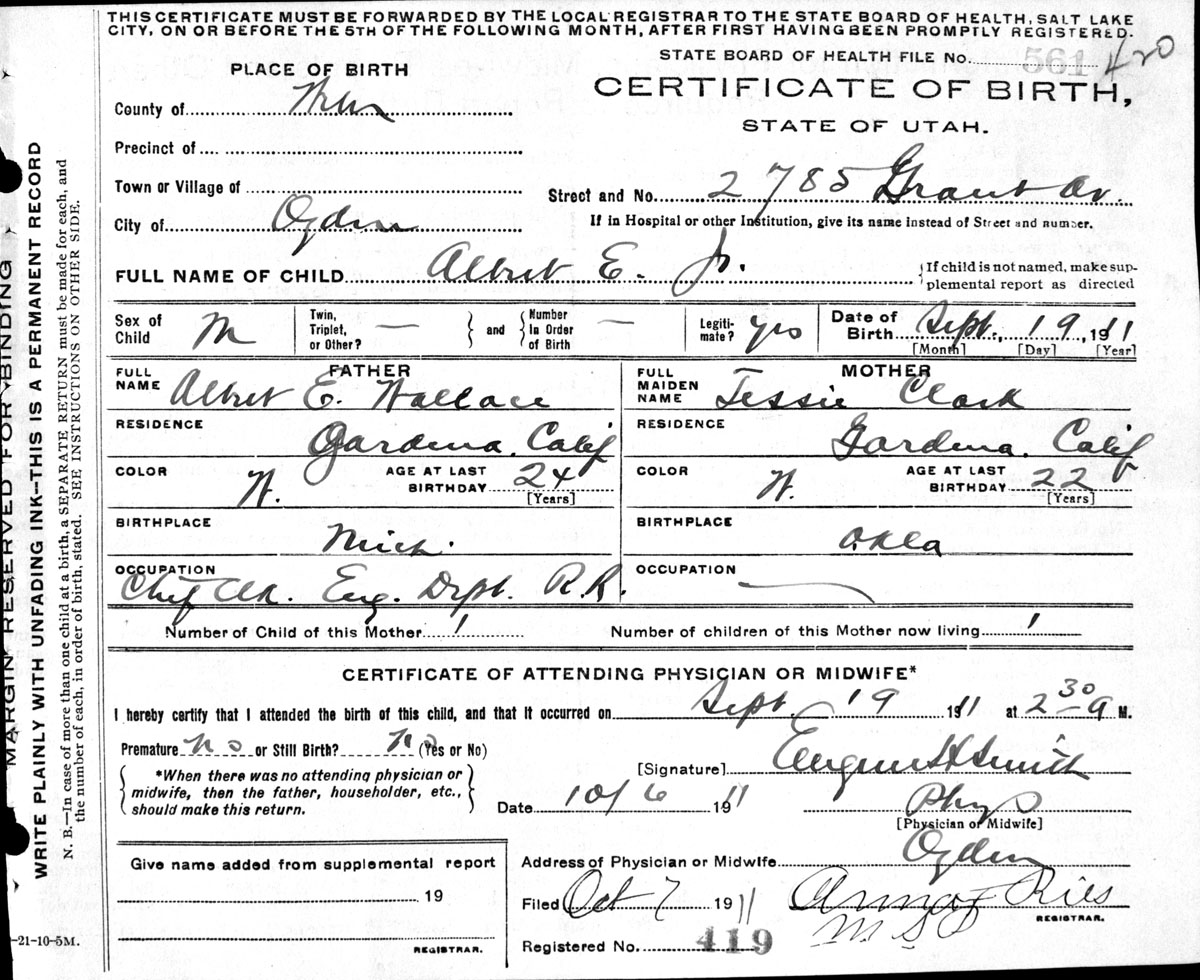 THIS CERTIFICATE MUST BE FORWARDED BY THE LOCAL REGISTRAR TO THE STATE BOARD OF HEALTH, SALT LAKE
CITY, ON OR BEFORE THE 5TH OF THE FOLLOWING MONTH, AFTER FIRST HAVING BEEN PROMPTLY REGISTERED.
STATE BOARD OF HEALTH FILE No. 561 420
PLACE OF BIRTH
CERTIFICATE OF BIRTH,
STATE OF UTAH.
County of
Precinct of
Town or Village of
Street and No. 2785 Grant Av.
City of Ogden
If in Hospital or other Institution, give its name instead of Street and number.
FULL NAME OF CHILD Albert E. Jr.
If child is not named, make sup-
plemental report as directed
Sex of Child M
Twin, Triplet, or Other? —
and
Number In Order of Birth —
Legiti-mate? yes
Date of Birth Sept. 19, 1911
[Month] [Day] [Year]
FATHER
FULL NAME Albert E. Wallace
RESIDENCE Gardena. Calif
COLOR W.
AGE AT LAST BIRTHDAY 24
[Years]
BIRTHPLACE Mich.
OCCUPATION Eng. Dept. R.R.
MOTHER
FULL MAIDEN NAME Jessie Clark
RESIDENCE Gardena. Calif
COLOR W.
AGE AT LAST BIRTHDAY 22
[Years]
BIRTHPLACE Okla
OCCUPATION
Number of Child of this Mother 1
Number of children of this Mother now living 1
CERTIFICATE OF ATTENDING PHYSICIAN OR MIDWIFE*
I hereby certify that I attended the birth of this child, and that it occurred on Sept. 19 1911 at 2 30 A M.
Premature No or Still Birth? No (Yes or No)
*When there was no attending physician or
midwife, then the father, householder, etc.,
should make this return.
[Signature] Eugene H Smith
Date 10/6 1911
Phys
[Physician or Midwife]
Give name added from supplemental report
19
REGISTRAR.
Address of Physician or Midwife Ogden
Filed Oct 7 1911
Ries
REGISTRAR.
Registered No. 419
MARGIN RESERVED FOR BINDING
WRITE PLAINLY WITH UNFADING INK—THIS IS A PERMANENT RECORD
N. B.—In case of more than one child at a birth, a SEPARATE RETURN must be made for each, and
the number of each, in order of birth, stated. SEE INSTRUCTIONS ON OTHER SIDE.
-21-10-5M.